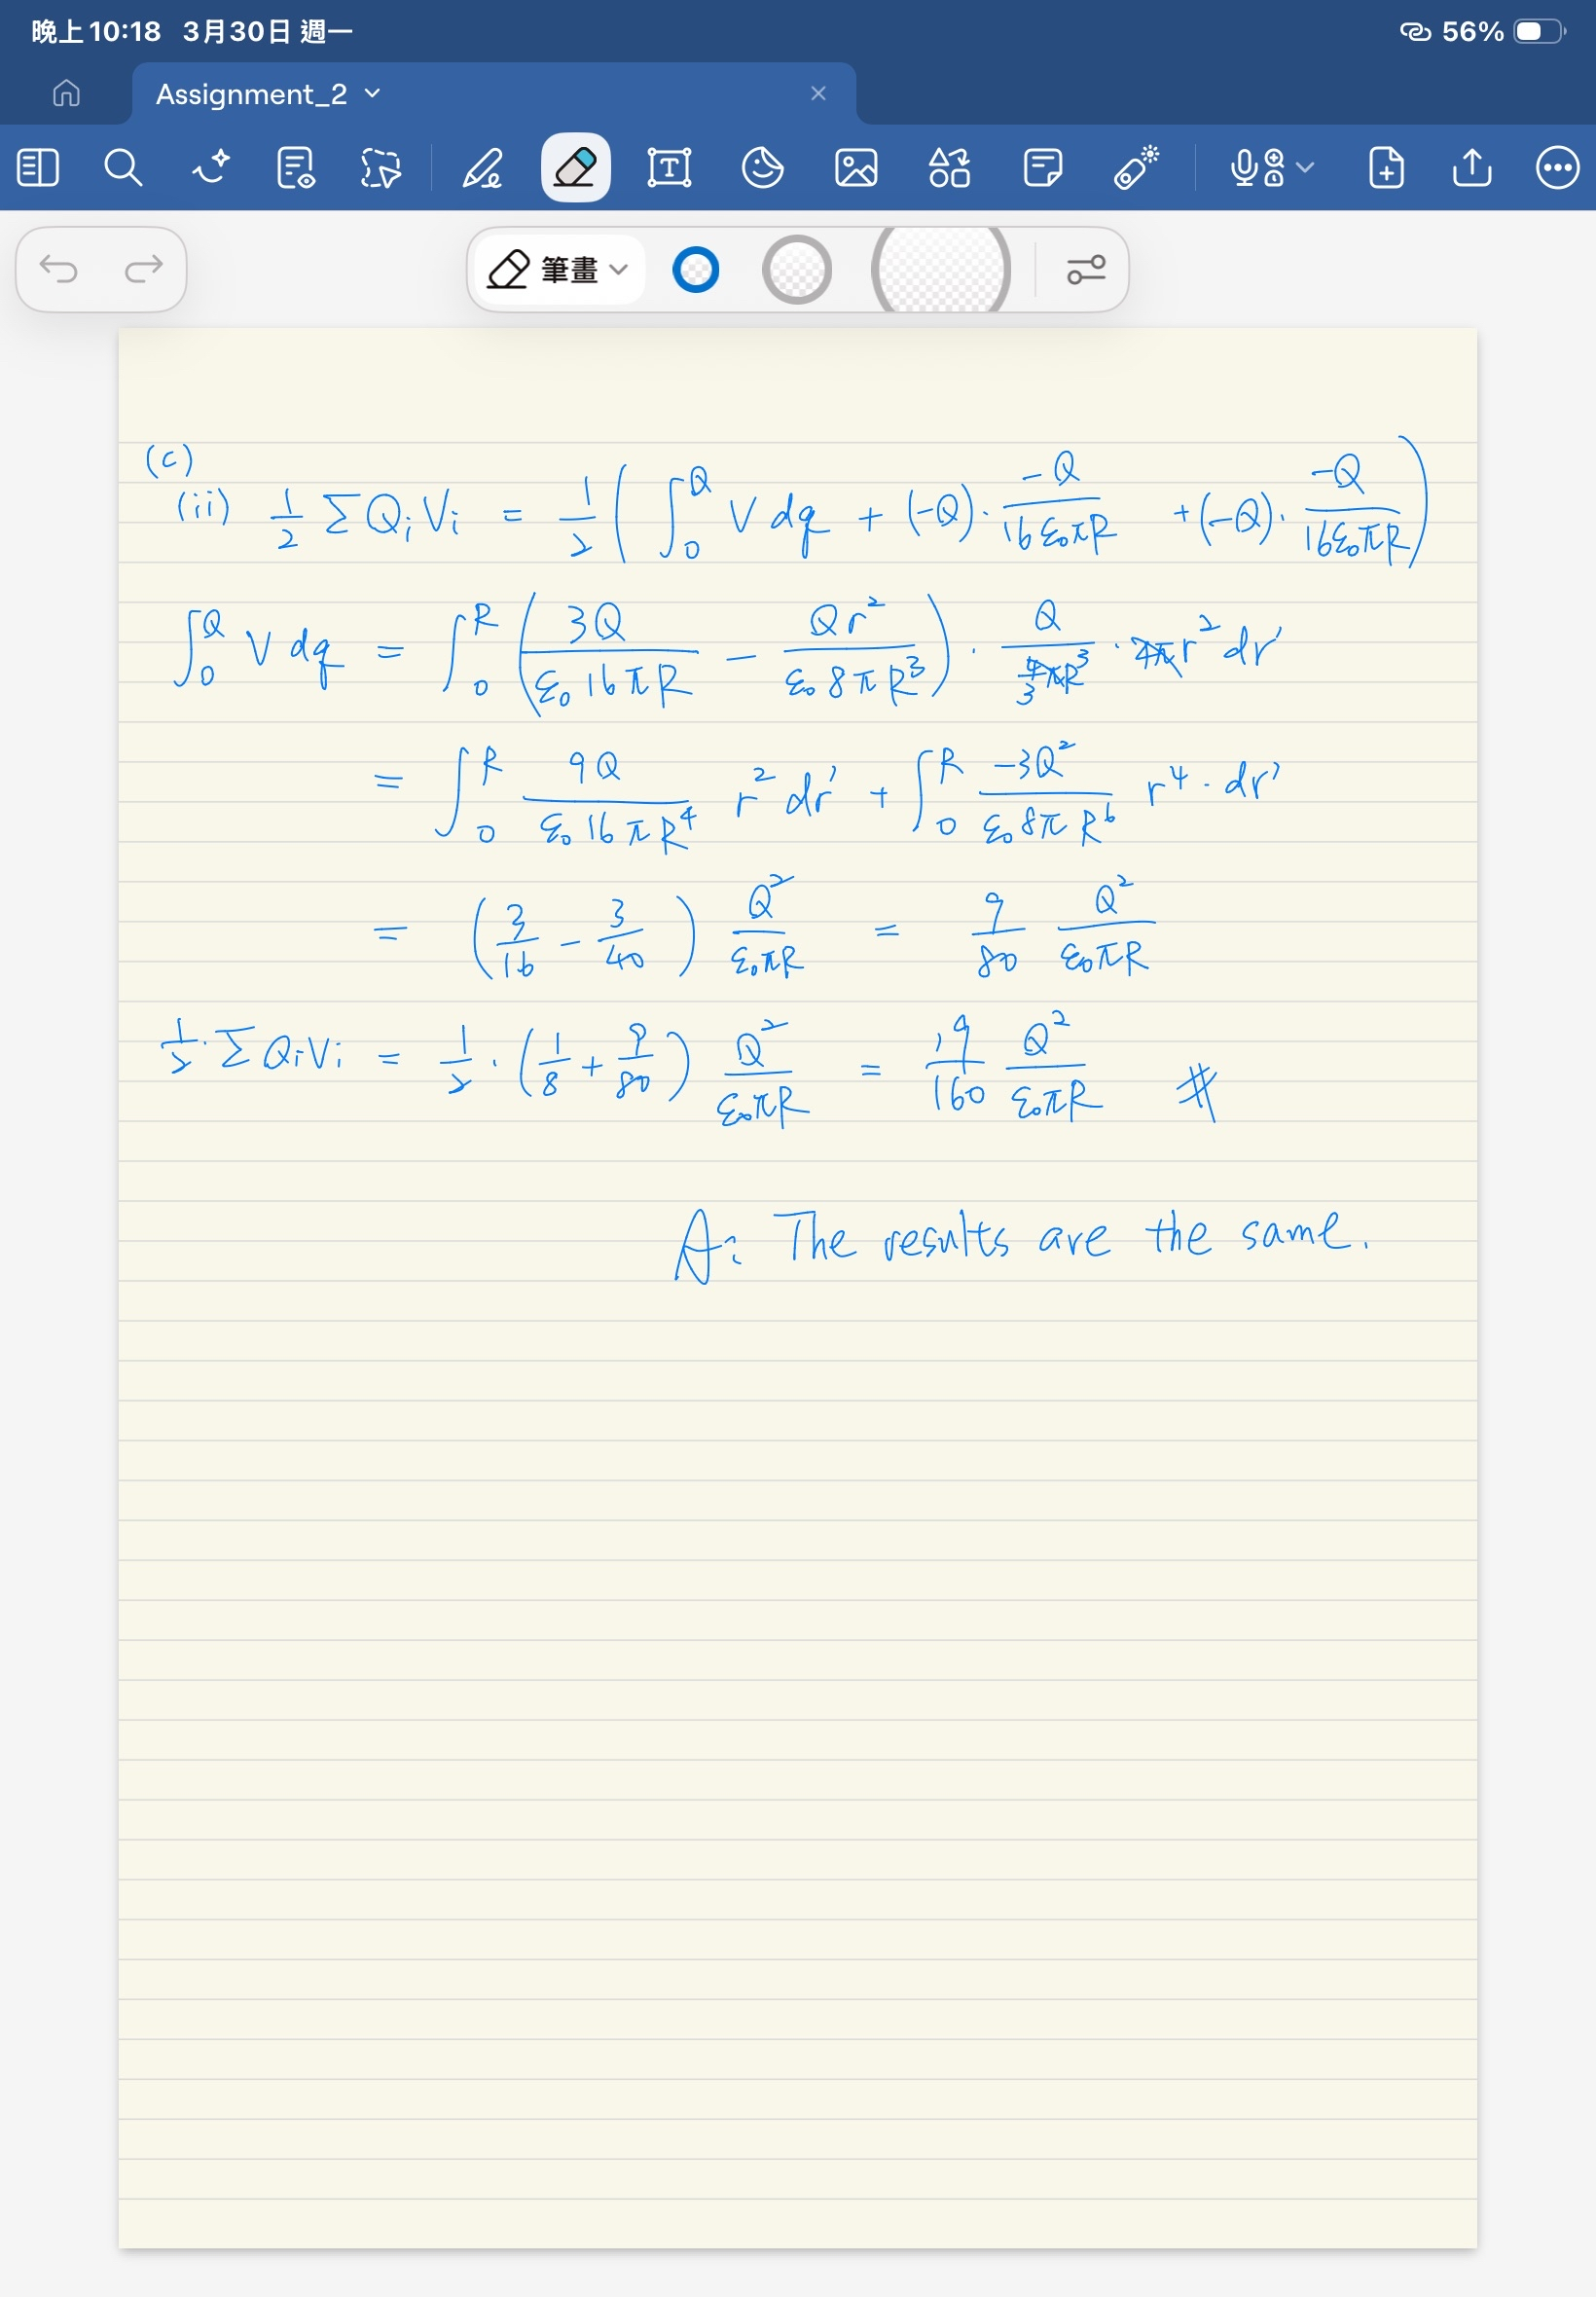 晚上10:18 3月30日 週一 56%
Assignment_2
筆畫
(c)
(ii) 1/2 ΣQᵢVᵢ = 1/2 ( ∫₀^Q V dq + (-Q)· -Q/(16ε₀πR) + (-Q)· -Q/(16ε₀πR) )
∫₀^Q V dq = ∫₀^R ( 3Q/(ε₀16πR) - Qr²/(ε₀8πR³) ) · Q/(4/3 πR³) · 4π r² dr'
= ∫₀^R 9Q/(ε₀16πR⁴) r² dr' + ∫₀^R -3Q²/(ε₀8πR⁶) r⁴ · dr'
= ( 3/16 - 3/40 ) Q²/(ε₀πR) = 9/80 Q²/(ε₀πR)
1/2 · ΣQᵢVᵢ = 1/2 · ( 1/8 + 9/80 ) Q²/(ε₀πR) = 19/160 Q²/(ε₀πR) #
A: The results are the same.